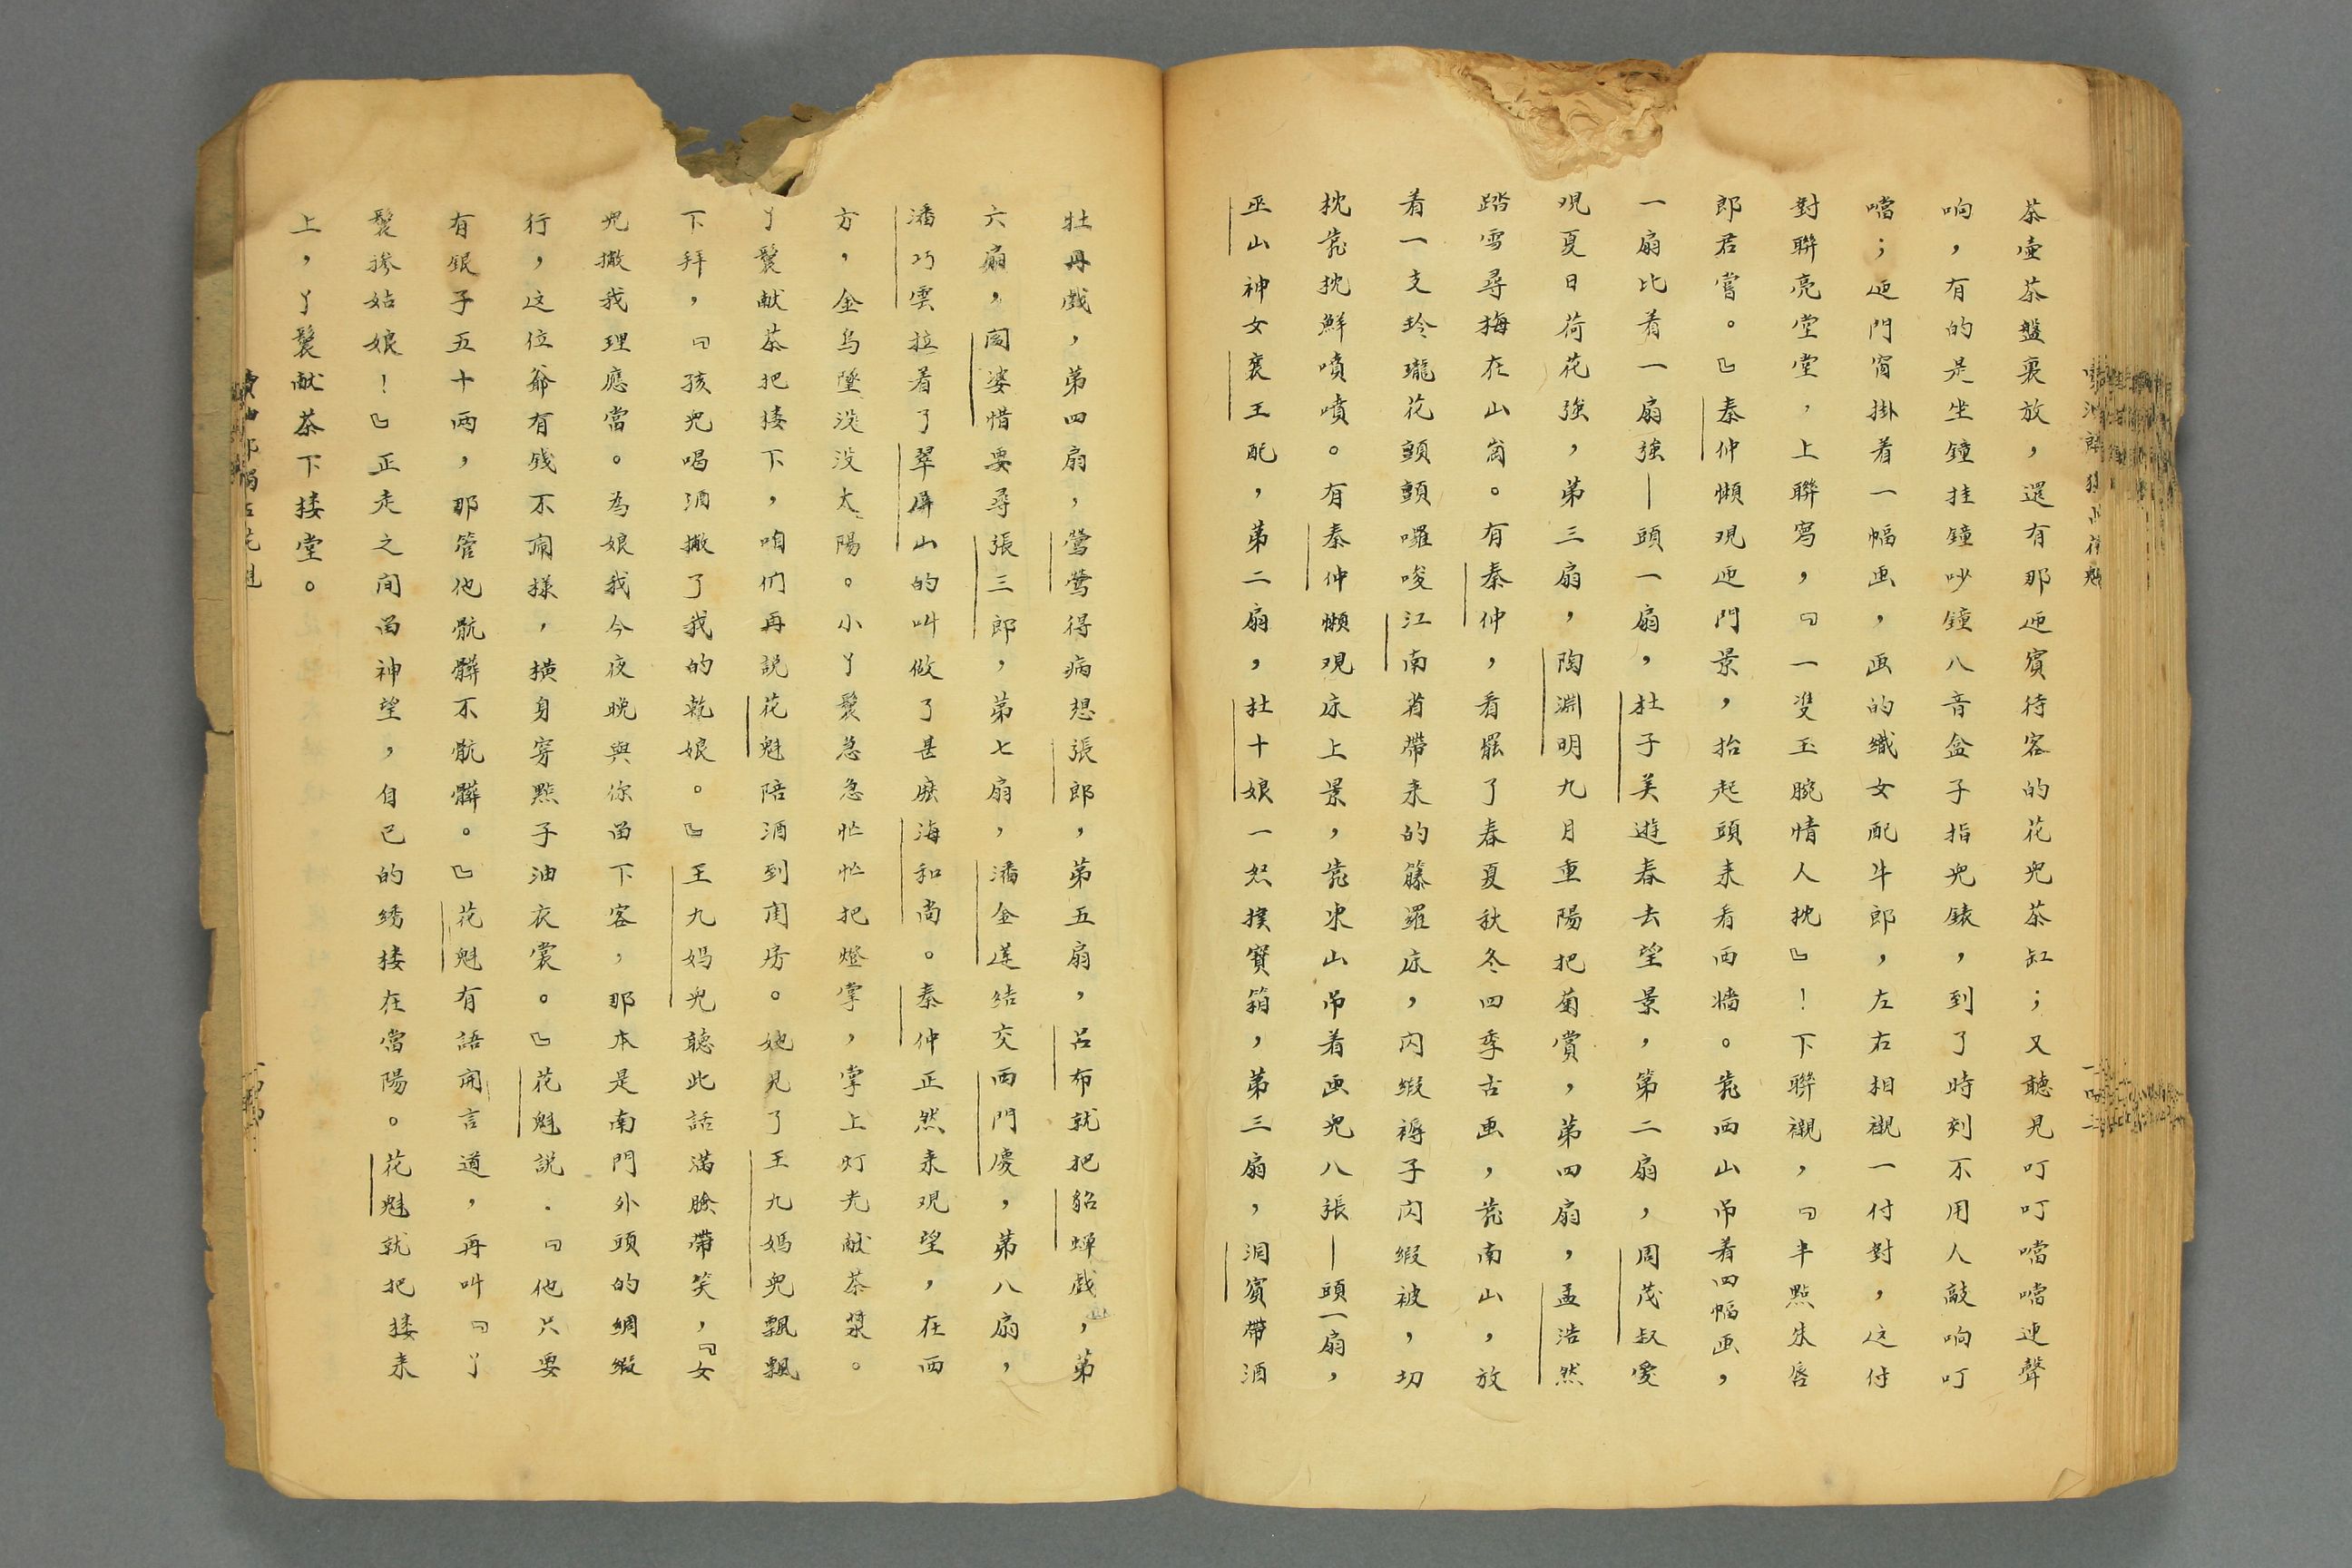 茶壷茶盤裏放，還有那迎賓待客的花兒茶缸；又聽見叮叮噹噹連聲
响，有的是坐鐘挂鐘吵鐘八音盒子指兒錶，到了時刻不用人敲响叮
噹；迎門窗掛着一幅画，画的織女配牛郎，左右相襯一付對，这付
對聯亮堂堂，上聯寫，『一雙玉腕情人枕』！下聯襯，『半點朱唇
郎君嘗。』秦仲懶观迎門景，抬起頭来看西墙。靠西山吊着四幅画，
一扇比着一扇強—頭一扇，杜子美遊春去望景，第二扇，周茂叔愛
观夏日荷花強，第三扇，陶淵明九月重陽把菊賞，第四扇，孟浩然
踏雪尋梅在山崗。有秦仲，看罷了春夏秋冬四季古画，靠南山，放
着一支玲瓏花顫顫囉唆江南省帶来的籐羅床，闪缎褥子闪缎被，切
枕靠枕鮮噴噴。有秦仲懒观床上景，靠北山吊着画兒八張—頭一扇，
巫山神女襄王配，第二扇，杜十娘一怒撲寳箱，第三扇，洞賓帶酒
牡丹戲，第四扇，鶯鶯得病想張郎，第五扇，呂布就把貂蟬戲，第
六扇，閻婆惜要尋張三郎，第七扇，潘金莲结交西門慶，第八扇，
潘巧雲拉着了翠屏山的叫做了甚麽海和尚。秦仲正然来观望，在西
方，金烏墜没没太陽。小丫鬟急急忙忙把燈掌，掌上灯光献茶漿。
丫鬟献茶把楼下，咱们再説花魁陪酒到闺房。她見了王九媽兒飄飄
下拜，『孩兒喝酒撇了我的乾娘。』王九媽兒聽此話滿臉帶笑，『女
兒撇我理應當。為娘我今夜晚與你畄下客，那本是南門外頭的綢缎
行，这位爺有钱不闹樣，横身穿點子油衣裳。』花魁説．『他只要
有銀子五十两，那管他骯髒不骯髒。』花魁有語開言道，再叫『丫
鬟搀姑娘！』正走之间畄神望，自己的绣楼在當陽。花魁就把楼来
上，丫鬟献茶下楼堂。